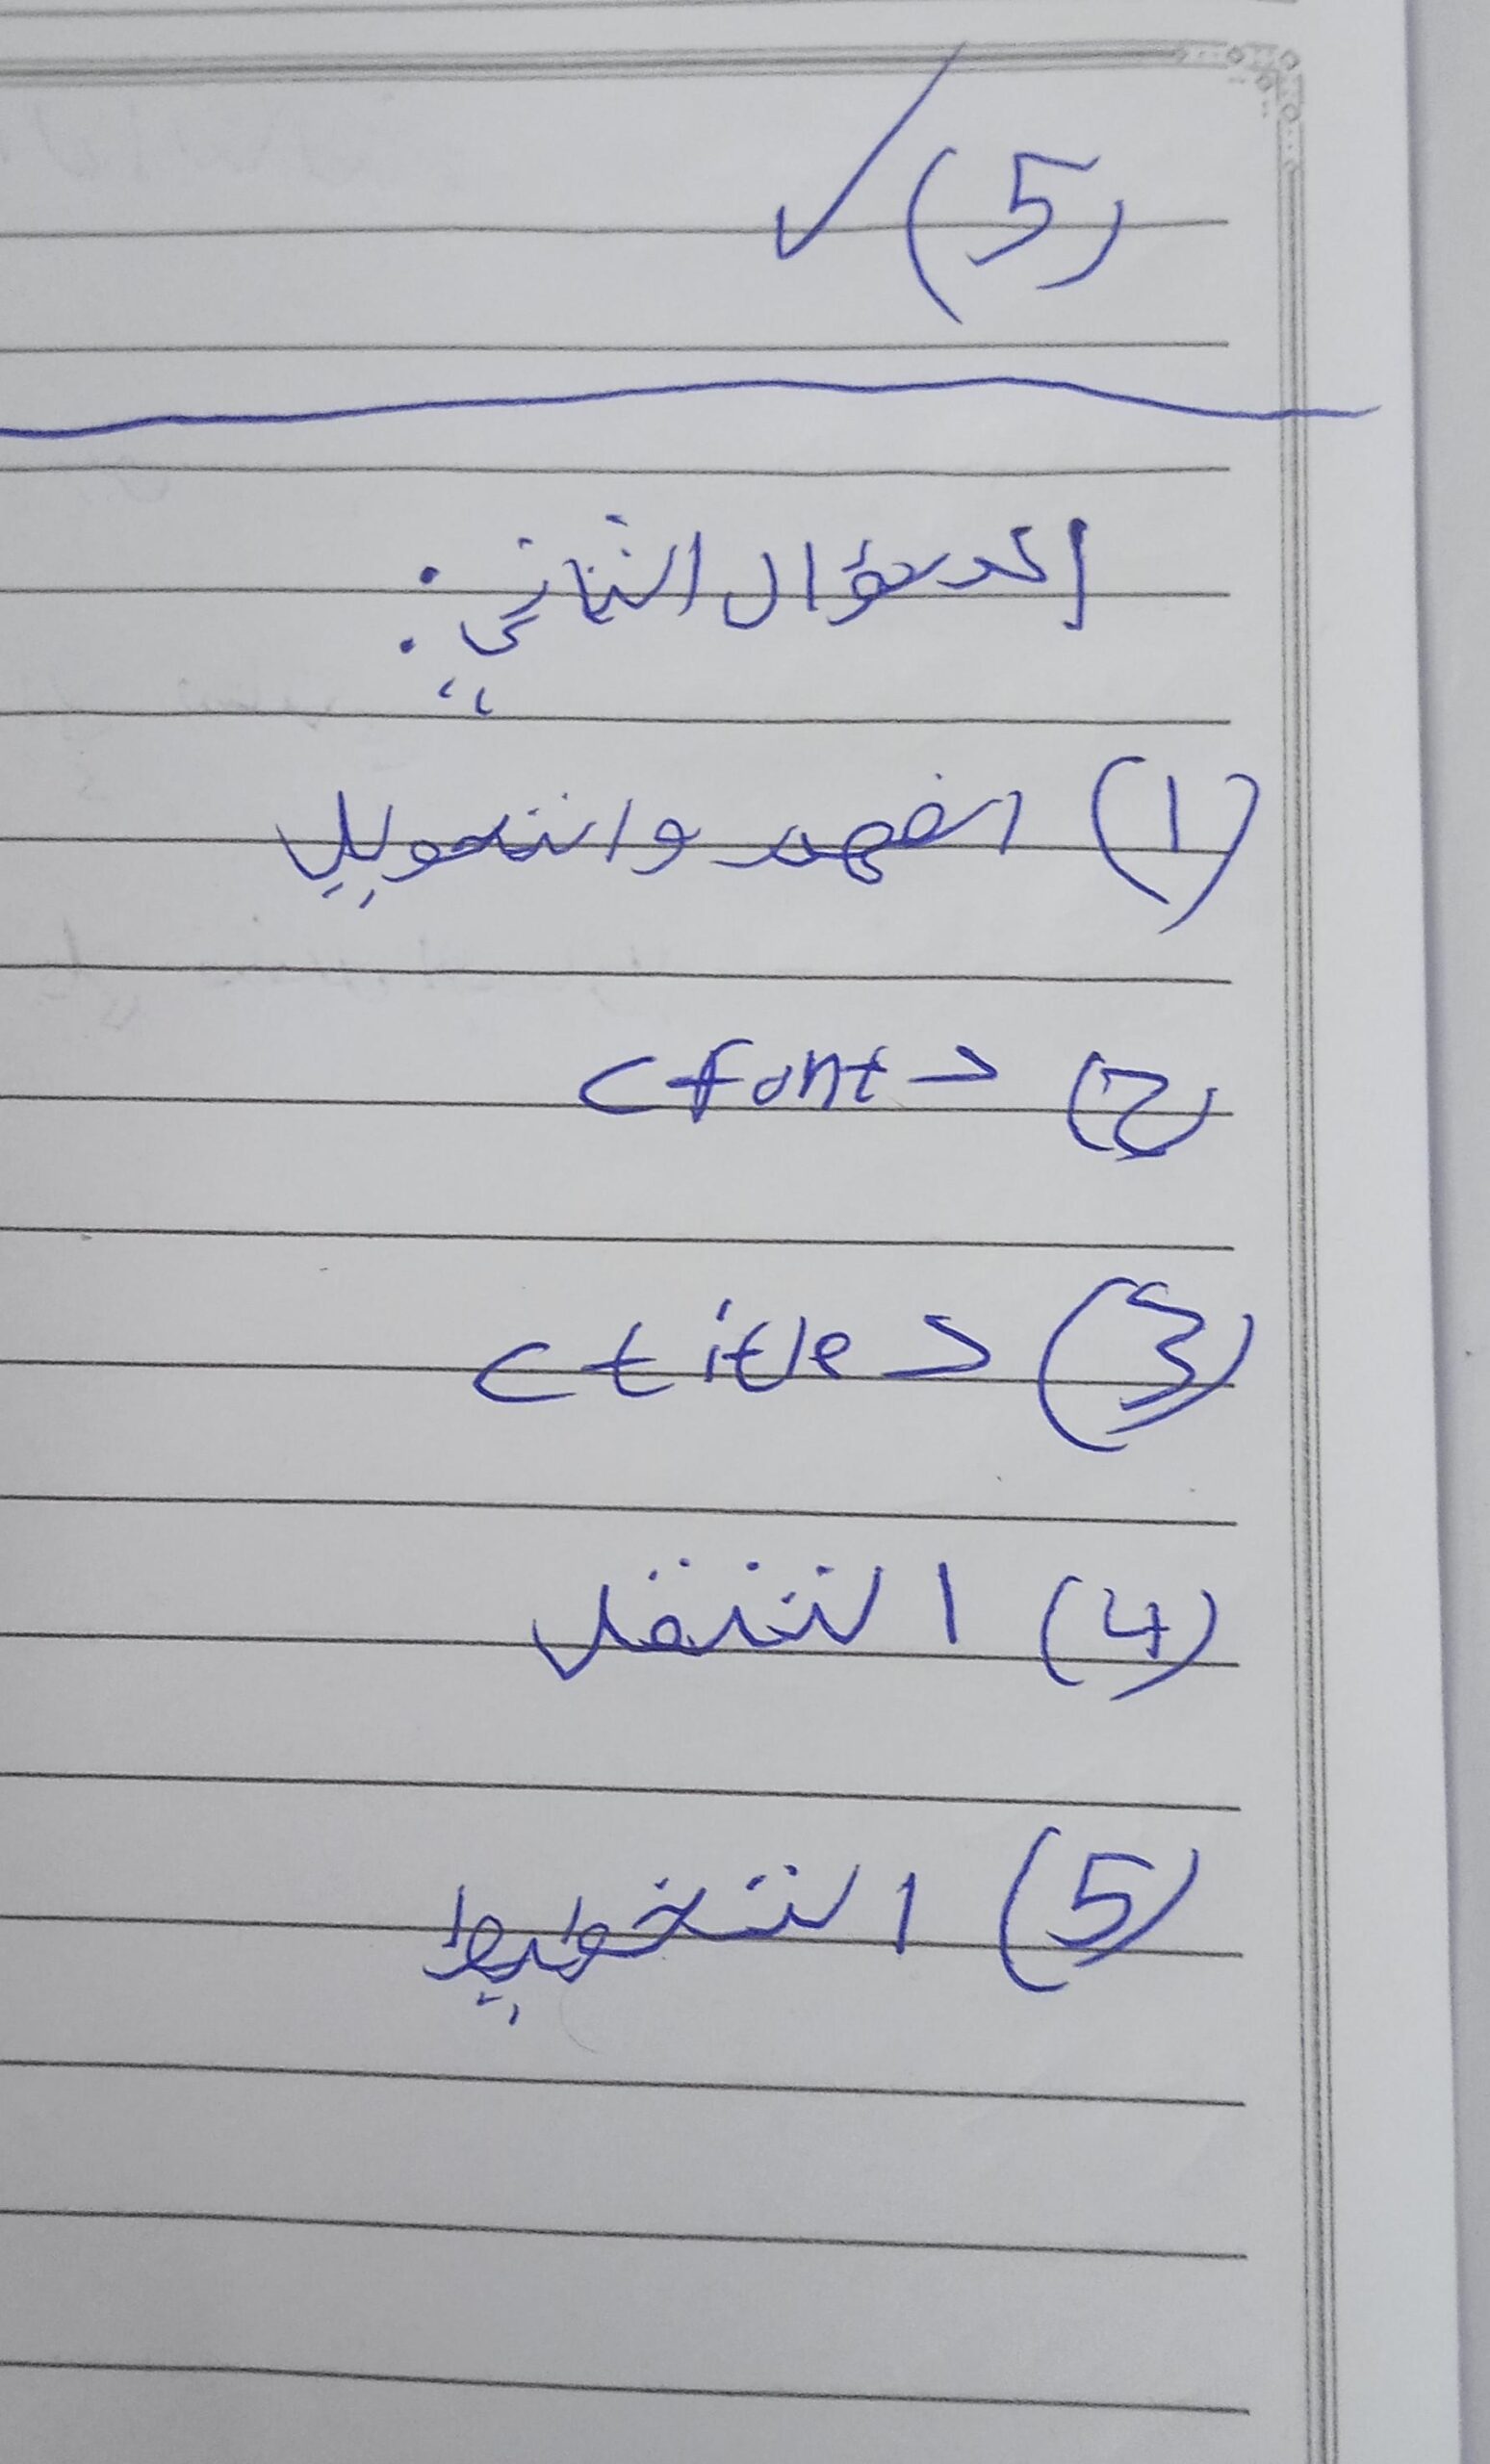 (5) ✓
السؤال الثاني:
(1) الفهم والتحويل
(2) <font>
(3) <title>
(4) التنقل
(5) التخطيط